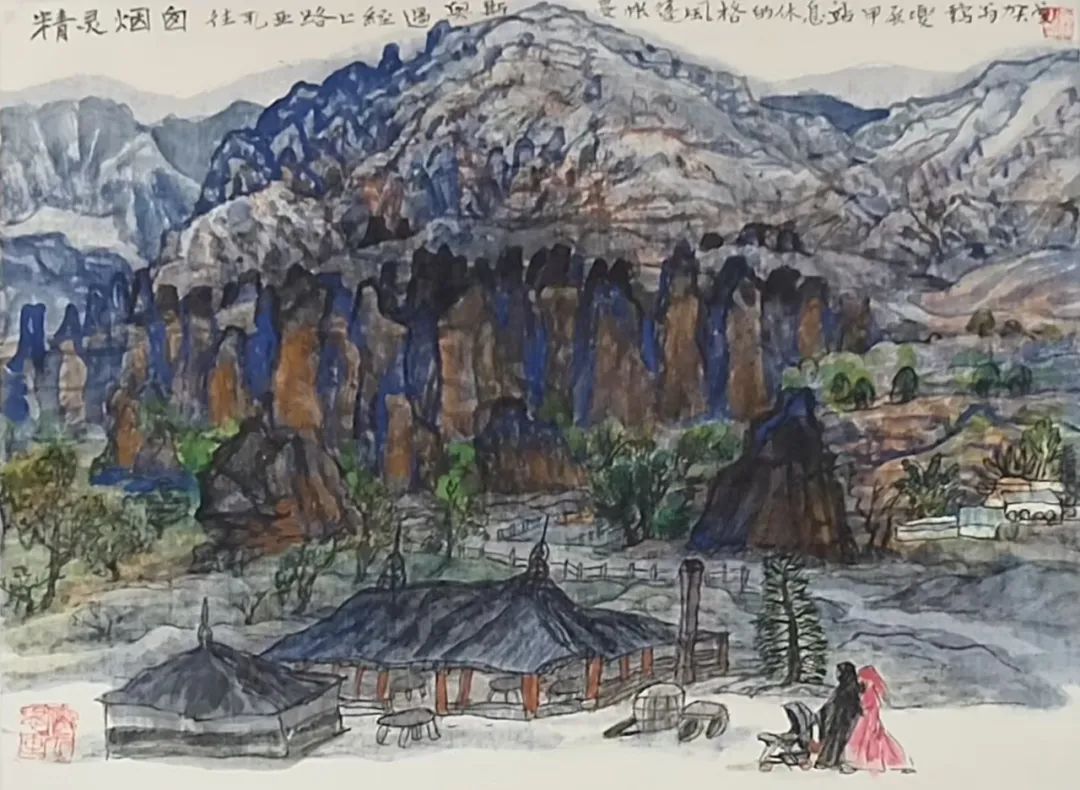 精灵烟囱 往孔亚路上经过奥斯曼帐篷风格的休息站 甲辰夏